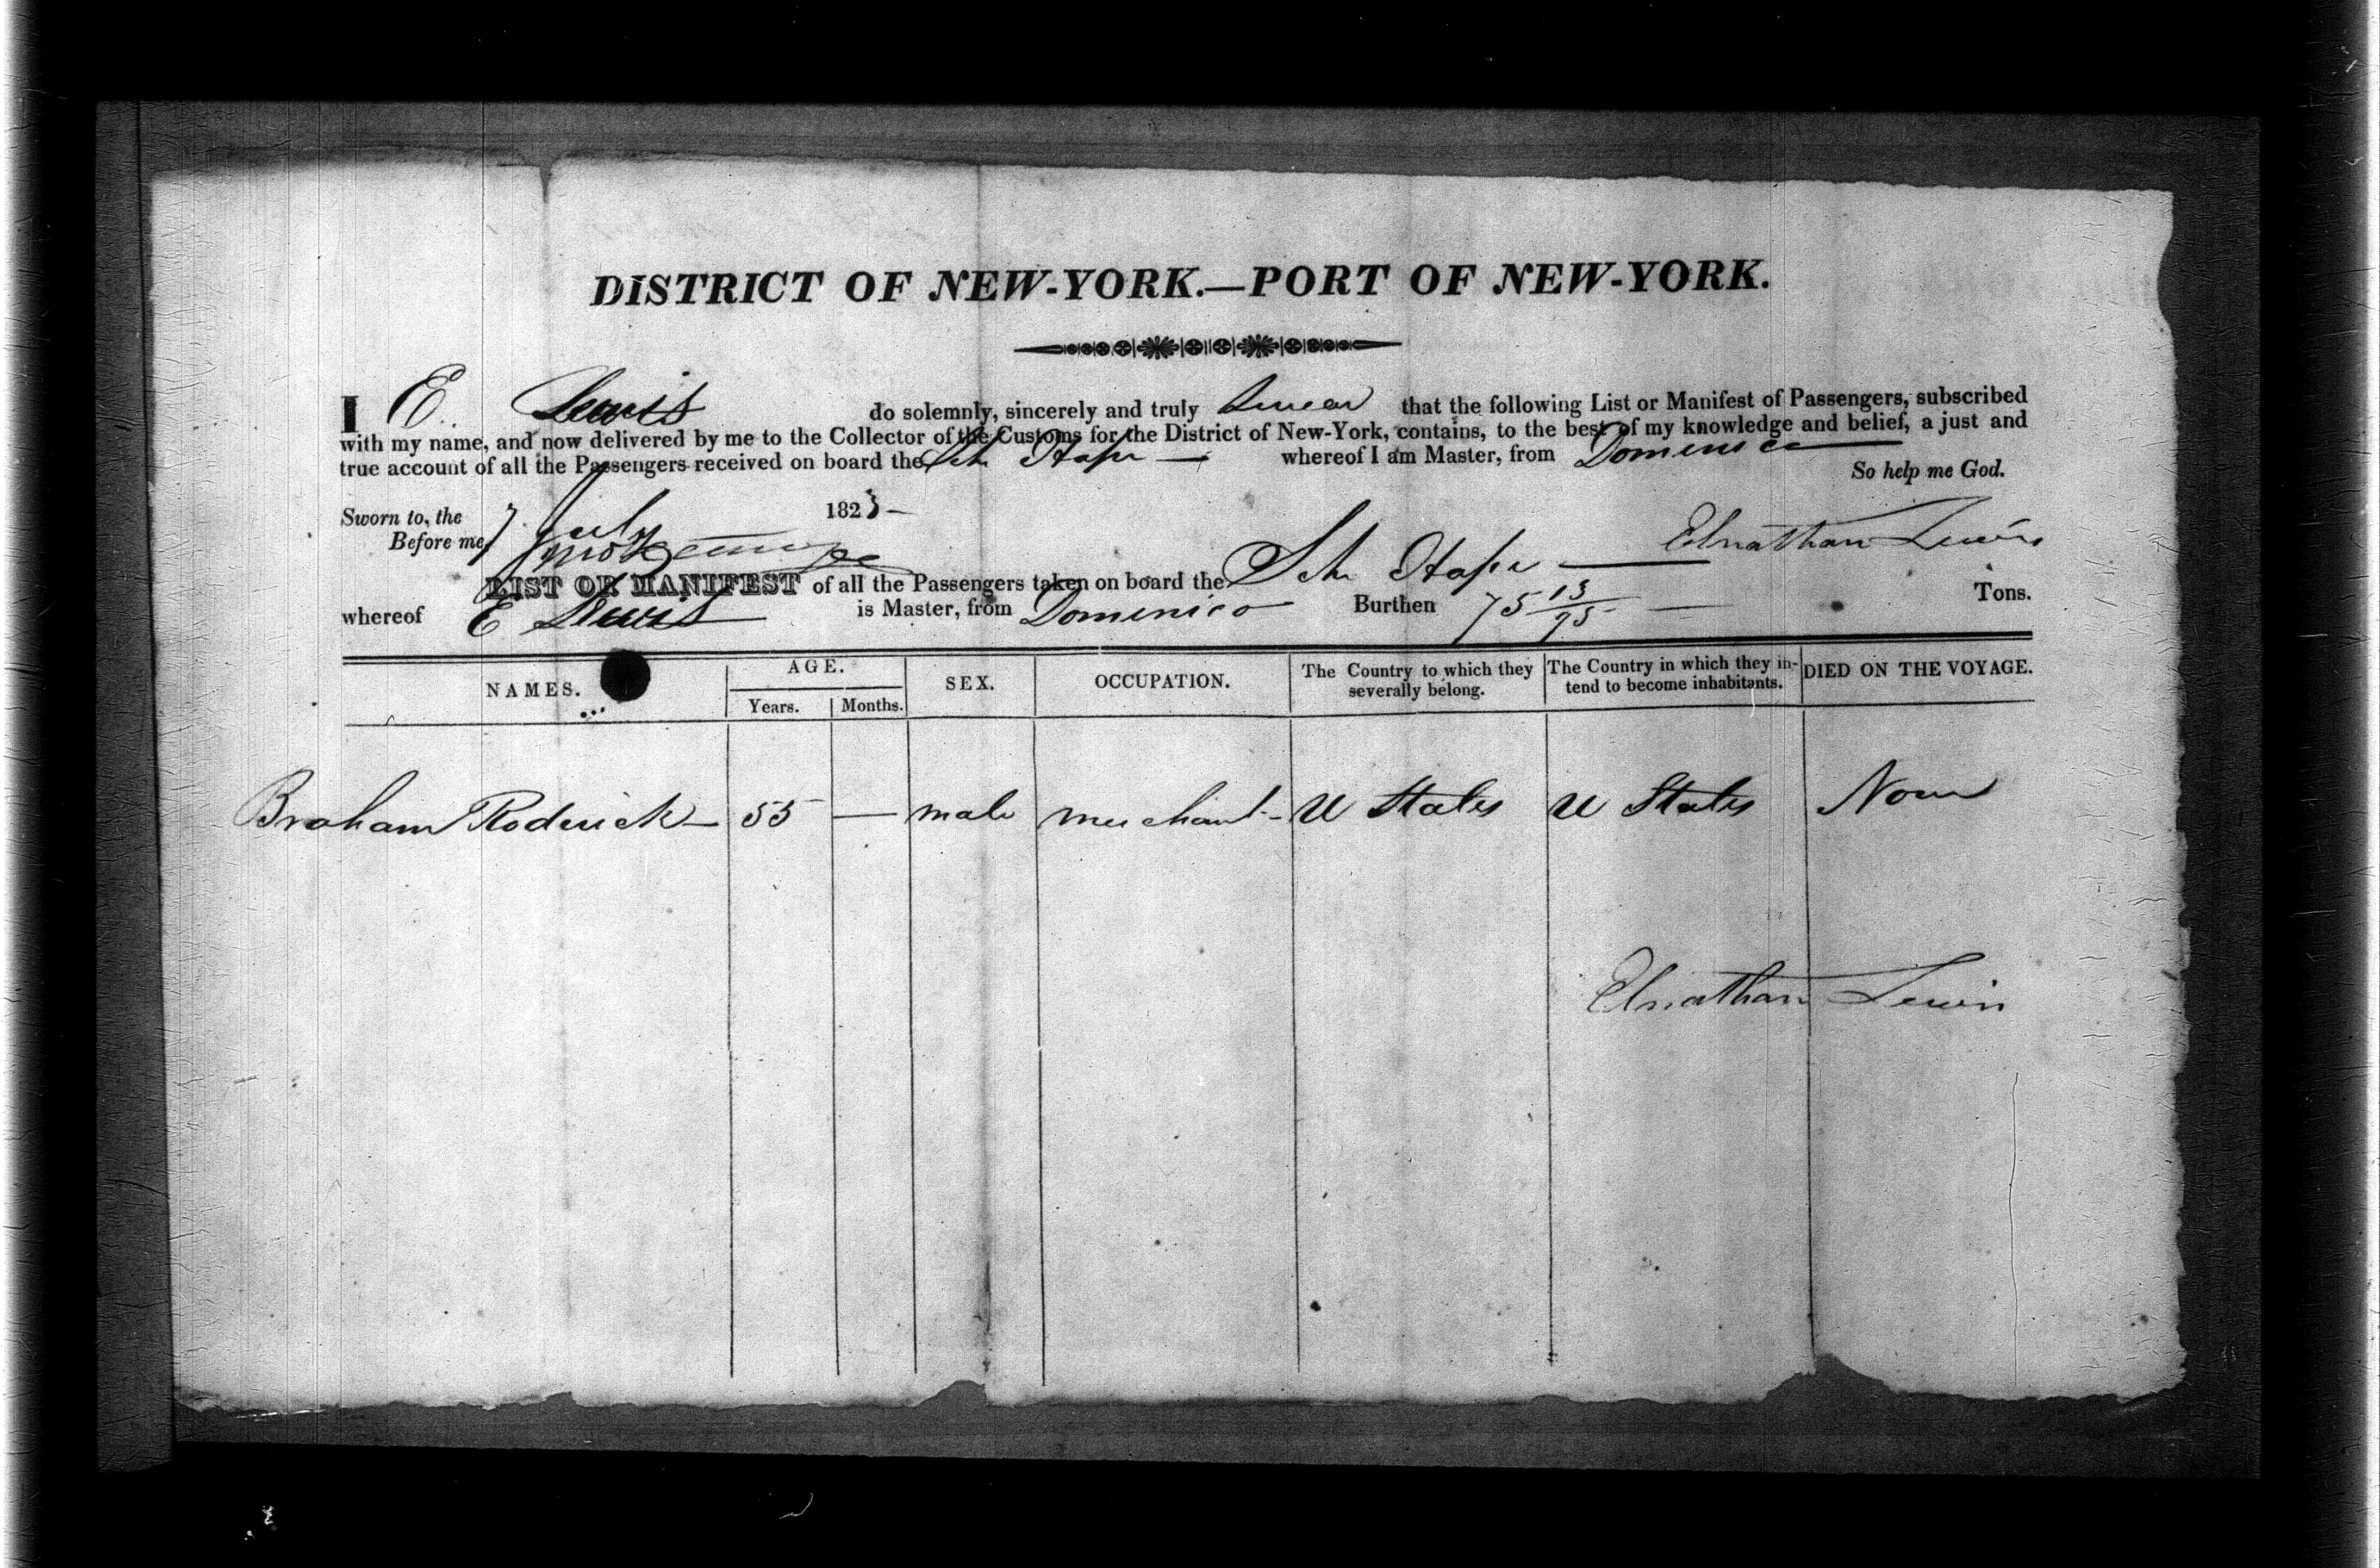 DISTRICT OF NEW-YORK.—PORT OF NEW-YORK.
I E. Lewis do solemnly, sincerely and truly swear that the following List or Manifest of Passengers, subscribed
with my name, and now delivered by me to the Collector of the Customs for the District of New-York, contains, to the best of my knowledge and belief, a just and
true account of all the Passengers received on board the Sch Hope — whereof I am Master, from Domenico
So help me God.
Sworn to, the 7 July 1823 —
Before me,
Elnathan Lewis
LIST OR MANIFEST of all the Passengers taken on board the Sch Hope —
whereof E Lewis is Master, from Domenico Burthen 75 13/95 — Tons.
NAMES. AGE. SEX. OCCUPATION. The Country to which they severally belong. The Country in which they intend to become inhabitants. DIED ON THE VOYAGE.
Years. Months.
Braham Roderick — 55 — male merchant - U States U States None
Elnathan Lewis